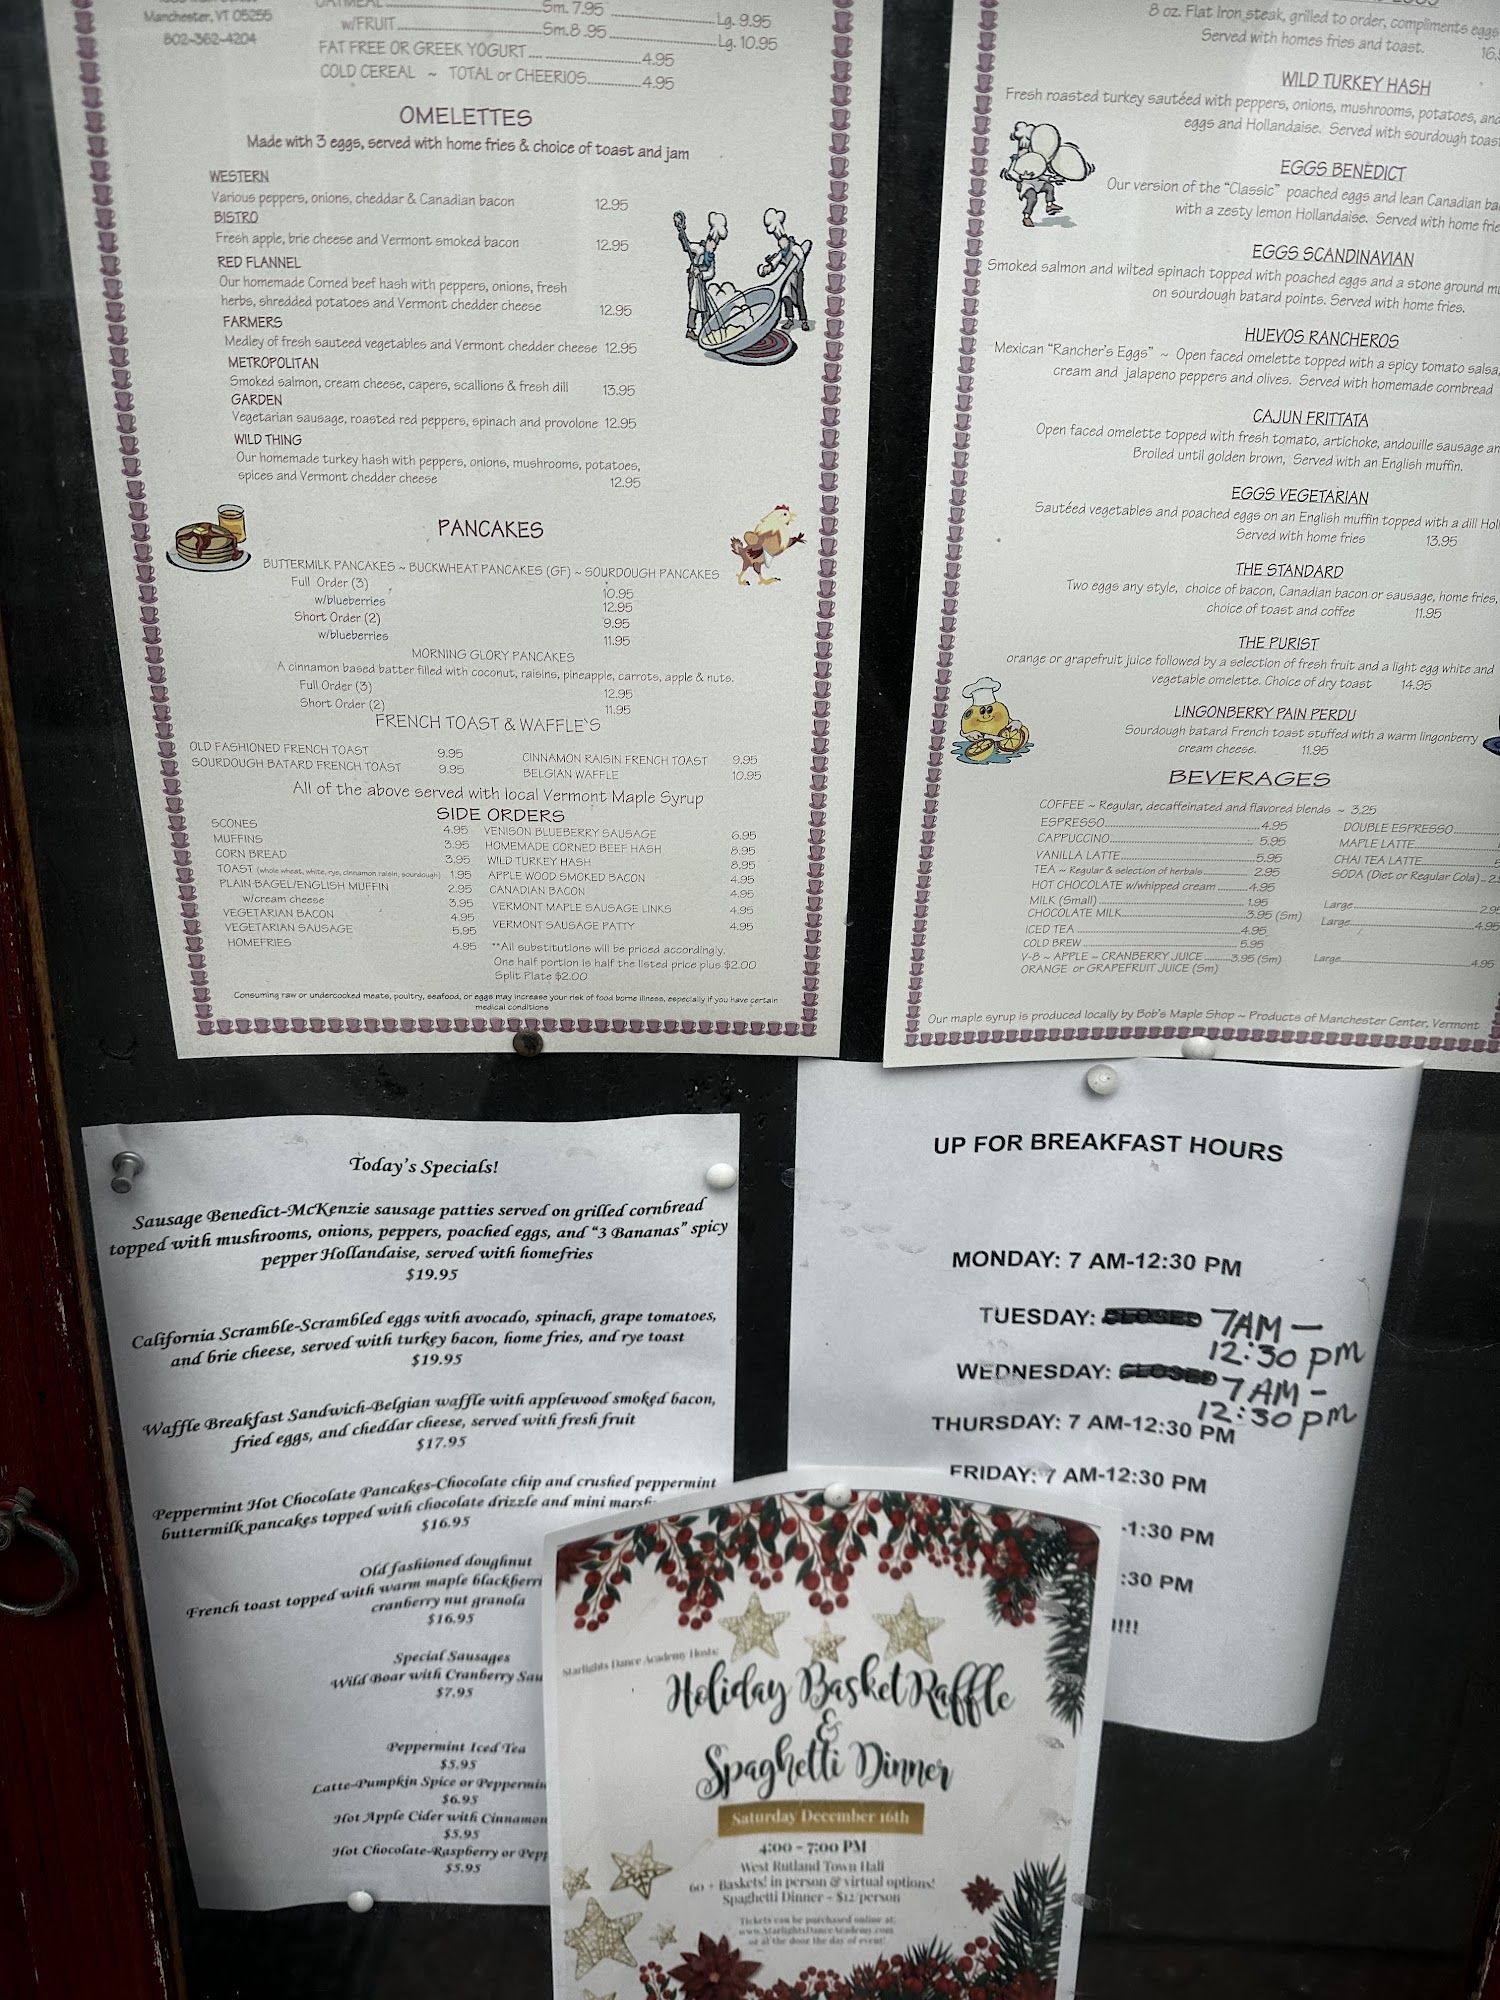 Manchester, VT 05255
802-362-4204
OATMEAL Sm. 7.95 Lg. 9.95
w/FRUIT Sm.8 .95 Lg. 10.95
FAT FREE OR GREEK YOGURT 4.95
COLD CEREAL ~ TOTAL or CHEERIOS 4.95
OMELETTES
Made with 3 eggs, served with home fries & choice of toast and jam
WESTERN
Various peppers, onions, cheddar & Canadian bacon 12.95
BISTRO
Fresh apple, brie cheese and Vermont smoked bacon 12.95
RED FLANNEL
Our homemade Corned beef hash with peppers, onions, fresh
herbs, shredded potatoes and Vermont chedder cheese 12.95
FARMERS
Medley of fresh sauteed vegetables and Vermont chedder cheese 12.95
METROPOLITAN
Smoked salmon, cream cheese, capers, scallions & fresh dill 13.95
GARDEN
Vegetarian sausage, roasted red peppers, spinach and provolone 12.95
WILD THING
Our homemade turkey hash with peppers, onions, mushrooms, potatoes,
spices and Vermont chedder cheese 12.95
PANCAKES
BUTTERMILK PANCAKES ~ BUCKWHEAT PANCAKES (GF) ~ SOURDOUGH PANCAKES
Full Order (3) 10.95
w/blueberries 12.95
Short Order (2) 9.95
w/blueberries 11.95
MORNING GLORY PANCAKES
A cinnamon based batter filled with coconut, raisins, pineapple, carrots, apple & nuts.
Full Order (3) 12.95
Short Order (2) 11.95
FRENCH TOAST & WAFFLE'S
OLD FASHIONED FRENCH TOAST 9.95 CINNAMON RAISIN FRENCH TOAST 9.95
SOURDOUGH BATARD FRENCH TOAST 9.95 BELGIAN WAFFLE 10.95
All of the above served with local Vermont Maple Syrup
SIDE ORDERS
SCONES 4.95 VENISON BLUEBERRY SAUSAGE 6.95
MUFFINS 3.95 HOMEMADE CORNED BEEF HASH 8.95
CORN BREAD 3.95 WILD TURKEY HASH 8.95
TOAST (whole wheat, white, rye, cinnamon raisin, sourdough) 1.95 APPLE WOOD SMOKED BACON 4.95
PLAIN BAGEL/ENGLISH MUFFIN 2.95 CANADIAN BACON 4.95
w/cream cheese 3.95 VERMONT MAPLE SAUSAGE LINKS 4.95
VEGETARIAN BACON 4.95 VERMONT SAUSAGE PATTY 4.95
VEGETARIAN SAUSAGE 5.95
HOMEFRIES 4.95
**All substitutions will be priced accordingly.
One half portion is half the listed price plus $2.00
Split Plate $2.00
Consuming raw or undercooked meats, poultry, seafood, or eggs may increase your risk of food borne illness, especially if you have certain
medical conditions
8 oz. Flat Iron steak, grilled to order, compliments eggs
Served with homes fries and toast. 16.
WILD TURKEY HASH
Fresh roasted turkey sautéed with peppers, onions, mushrooms, potatoes, and
eggs and Hollandaise. Served with sourdough toast
EGGS BENEDICT
Our version of the "Classic" poached eggs and lean Canadian ba
with a zesty lemon Hollandaise. Served with home frie
EGGS SCANDINAVIAN
Smoked salmon and wilted spinach topped with poached eggs and a stone ground mu
on sourdough batard points. Served with home fries.
HUEVOS RANCHEROS
Mexican "Rancher's Eggs" ~ Open faced omelette topped with a spicy tomato salsa,
cream and jalapeno peppers and olives. Served with homemade cornbread
CAJUN FRITTATA
Open faced omelette topped with fresh tomato, artichoke, andouille sausage an
Broiled until golden brown, Served with an English muffin.
EGGS VEGETARIAN
Sautéed vegetables and poached eggs on an English muffin topped with a dill Hol
Served with home fries 13.95
THE STANDARD
Two eggs any style, choice of bacon, Canadian bacon or sausage, home fries,
choice of toast and coffee 11.95
THE PURIST
orange or grapefruit juice followed by a selection of fresh fruit and a light egg white and
vegetable omelette. Choice of dry toast 14.95
LINGONBERRY PAIN PERDU
Sourdough batard French toast stuffed with a warm lingonberry
cream cheese. 11.95
BEVERAGES
COFFEE ~ Regular, decaffeinated and flavored blends ~ 3.25
ESPRESSO 4.95 DOUBLE ESPRESSO
CAPPUCCINO 5.95 MAPLE LATTE
VANILLA LATTE 5.95 CHAI TEA LATTE
TEA ~ Regular & selection of herbals 2.95 SODA (Diet or Regular Cola)
HOT CHOCOLATE w/whipped cream 4.95
MILK (Small) 1.95 Large 2.95
CHOCOLATE MILK 3.95 (Sm) Large 4.95
ICED TEA 4.95
COLD BREW 5.95
V-8 ~ APPLE ~ CRANBERRY JUICE 3.95 (Sm) Large 4.95
ORANGE or GRAPEFRUIT JUICE (Sm)
Our maple syrup is produced locally by Bob's Maple Shop ~ Products of Manchester Center, Vermont
Today's Specials!
Sausage Benedict-McKenzie sausage patties served on grilled cornbread
topped with mushrooms, onions, peppers, poached eggs, and "3 Bananas" spicy
pepper Hollandaise, served with homefries
$19.95
California Scramble-Scrambled eggs with avocado, spinach, grape tomatoes,
and brie cheese, served with turkey bacon, home fries, and rye toast
$19.95
Waffle Breakfast Sandwich-Belgian waffle with applewood smoked bacon,
fried eggs, and cheddar cheese, served with fresh fruit
$17.95
Peppermint Hot Chocolate Pancakes-Chocolate chip and crushed peppermint
buttermilk pancakes topped with chocolate drizzle and mini marsh
$16.95
Old fashioned doughnut
French toast topped with warm maple blackberri
cranberry nut granola
$16.95
Special Sausages
Wild Boar with Cranberry Sau
$7.95
Peppermint Iced Tea
$5.95
Latte-Pumpkin Spice or Peppermin
$6.95
Hot Apple Cider with Cinnamon
$5.95
Hot Chocolate-Raspberry or Pepp
$5.95
UP FOR BREAKFAST HOURS
MONDAY: 7 AM-12:30 PM
TUESDAY: CLOSED 7AM –
12:30 pm
WEDNESDAY: CLOSED 7AM –
12:30 pm
THURSDAY: 7 AM-12:30 PM
FRIDAY: 7 AM-12:30 PM
-1:30 PM
:30 PM
!!!!
Starlights Dance Academy Hosts:
Holiday Basket Raffle
&
Spaghetti Dinner
Saturday December 16th
4:00 - 7:00 PM
West Rutland Town Hall
60 + Baskets! in person & virtual options!
Spaghetti Dinner - $12/person
Tickets can be purchased online at:
www.StarlightsDanceAcademy.com
or at the door the day of event!